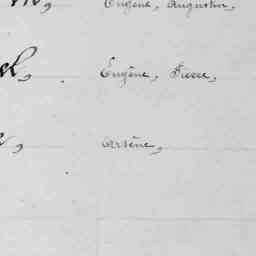 Eugène, Augustin,
Eugène, Pierre,
Arsène,